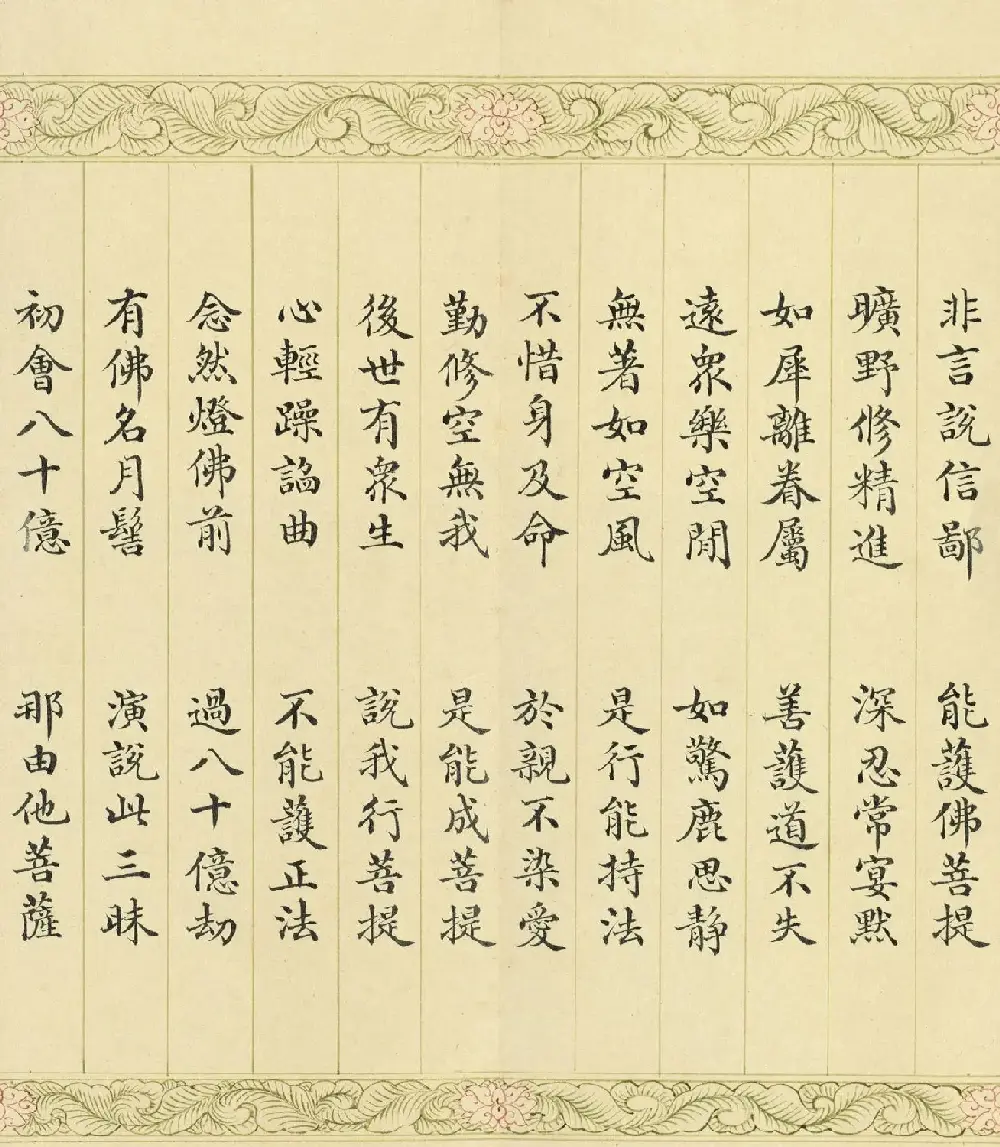 非言說信鄙　能護佛菩提
曠野修精進　深忍常宴默
如犀離眷屬　善護道不失
遠眾樂空閒　如驚鹿思靜
無著如空風　是行能持法
不惜身及命　於親不染愛
勤修空無我　是能成菩提
後世有眾生　說我行菩提
心輕躁諂曲　不能護正法
念然燈佛前　過八十億劫
有佛名月髻　演說此三昧
初會八十億　那由他菩薩